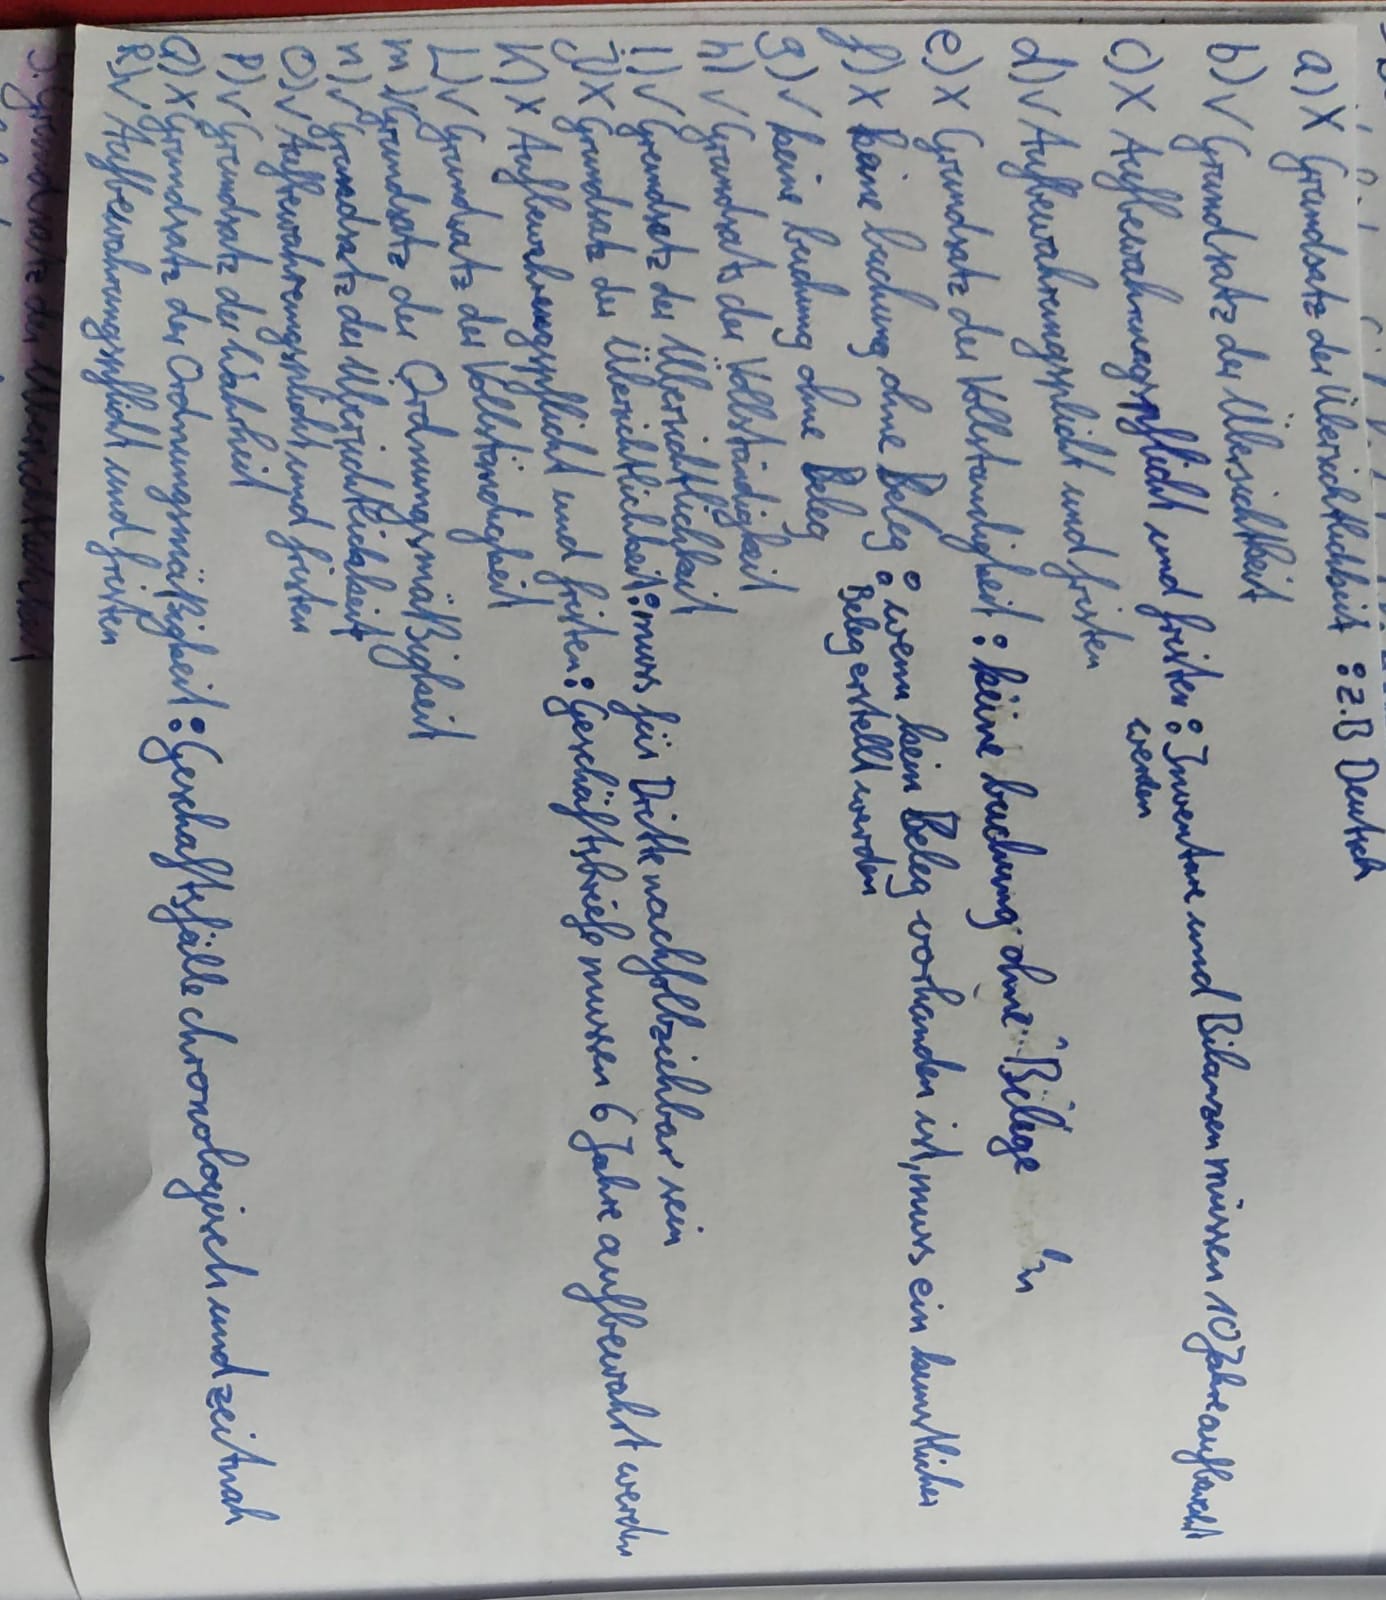 a) X Grundsatz der Übersichtlichkeit : z.B Deutsch
b) ✓ Grundsatz der Übersichtkeit
c) X Aufbewahrungspflicht und fristen : Inventare und Bilanzen müssen 10 Jahre aufbewahrt
werden
d) ✓ Aufbewahrungsplicht und fristen
e) X Grundsatz der Vollständigkeit : keine buchung ohne Belege
f) X keine buchung ohne Beleg : wenn kein Beleg vorhanden ist, muss ein künstlicher
Beleg erstellt werden
g) ✓ keine buchung ohne Beleg
h) ✓ Grundsatz der Vollständigkeit
i) ✓ Grundsatz der Übersichtlichkeit
j) X Grundsatz der Übersichtlichkeit : muss für Dritte nachvollziehbar sein
k) X Aufbewahrungspflicht und fristen : Geschäftsbriefe mussen 6 Jahre aufbewahrt werden
L) ✓ Grundsatz der Vollständigkeit
m) ✓ Grundsatz der Ordnungsmäßigkeit
n) ✓ Grundsatz der Übersichtlichkeit
o) ✓ Aufbewahrungsplicht und fristen
P) ✓ Grundsatz der Wahrheit
Q) X Grundsatz der Ordnungsmäßigkeit : Geschäftsfälle chronologisch und zeitnah
R) ✓ Aufbewahrungspflicht und fristen
3. Grundsatz der Übersichtlichkeit